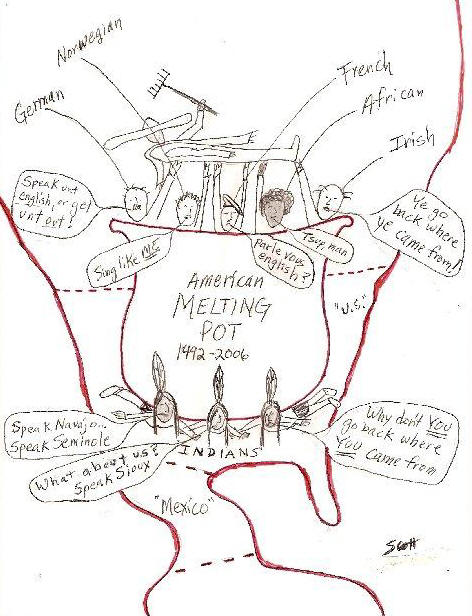 Norwegian
German
French
African
Irish
Speak unt
english, or get
unt out!
Sing like ME
Parle vous
english?
Tsup, man
Ye go
back where
ye came from!
American
MELTING
POT
1492-2006
"U.S."
Speak Navajo...
Speak Seminole
What about us?
Speak Sioux
INDIANS
Why don't YOU
go back where
YOU came from
"Mexico"
Scott